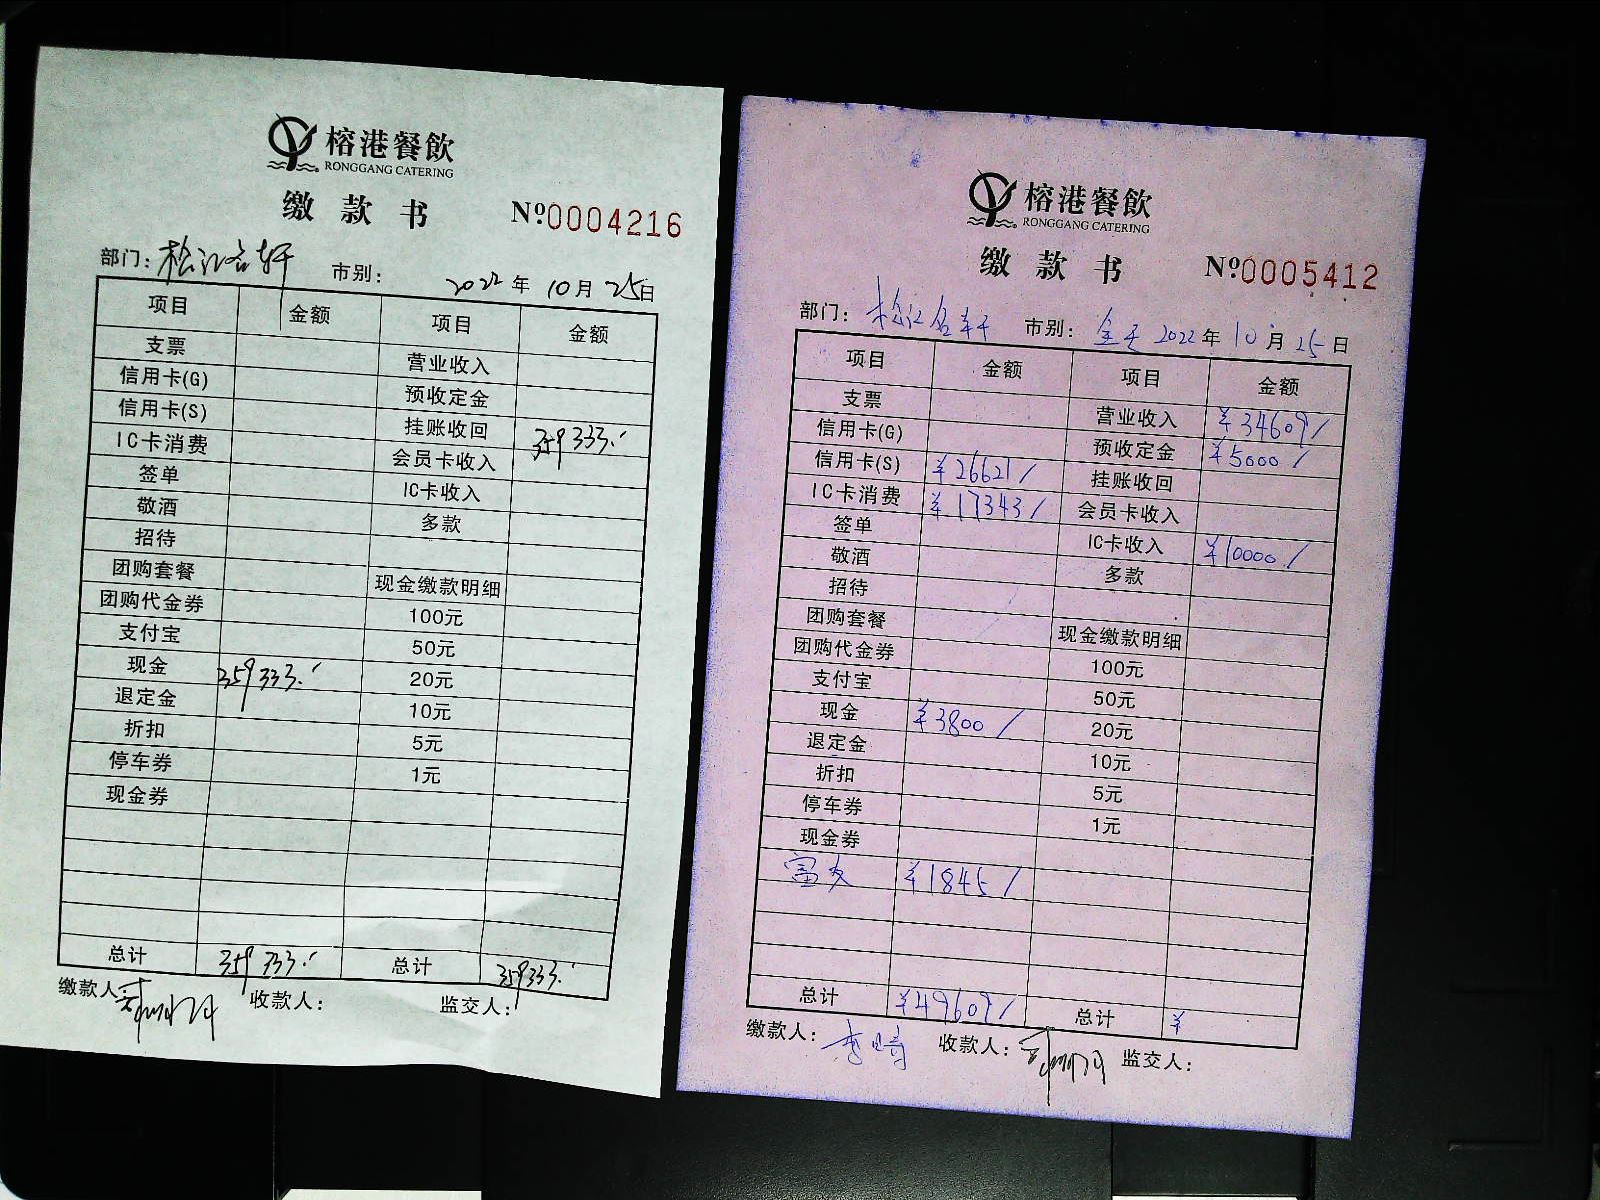 榕港餐飲
RONGGANG CATERING
缴款书 №0004216
部门：松江名轩 市别： 2022年10月25日
项目 金额 项目 金额
支票 营业收入
信用卡(G) 预收定金
信用卡(S) 挂账收回 359333.
IC卡消费 会员卡收入
签单 IC卡收入
敬酒 多款
招待
团购套餐 现金缴款明细
团购代金券 100元
支付宝 50元
现金 359333. 20元
退定金 10元
折扣 5元
停车券 1元
现金券
总计 359333. 总计 359333.
缴款人： 收款人： 监交人：
榕港餐飲
RONGGANG CATERING
缴款书 №0005412
部门：松江名轩 市别：全天 2022年10月25日
项目 金额 项目 金额
支票 营业收入 ¥34609/
信用卡(G) 预收定金 ¥5000/
信用卡(S) ¥26621/ 挂账收回
IC卡消费 ¥17343/ 会员卡收入
签单 IC卡收入 ¥10000/
敬酒 多款
招待
团购套餐 现金缴款明细
团购代金券 100元
支付宝 50元
现金 ¥3800/ 20元
退定金 10元
折扣 5元
停车券 1元
现金券
富友 ¥1845/
总计 ¥49609/ 总计 ¥
缴款人： 收款人： 监交人：